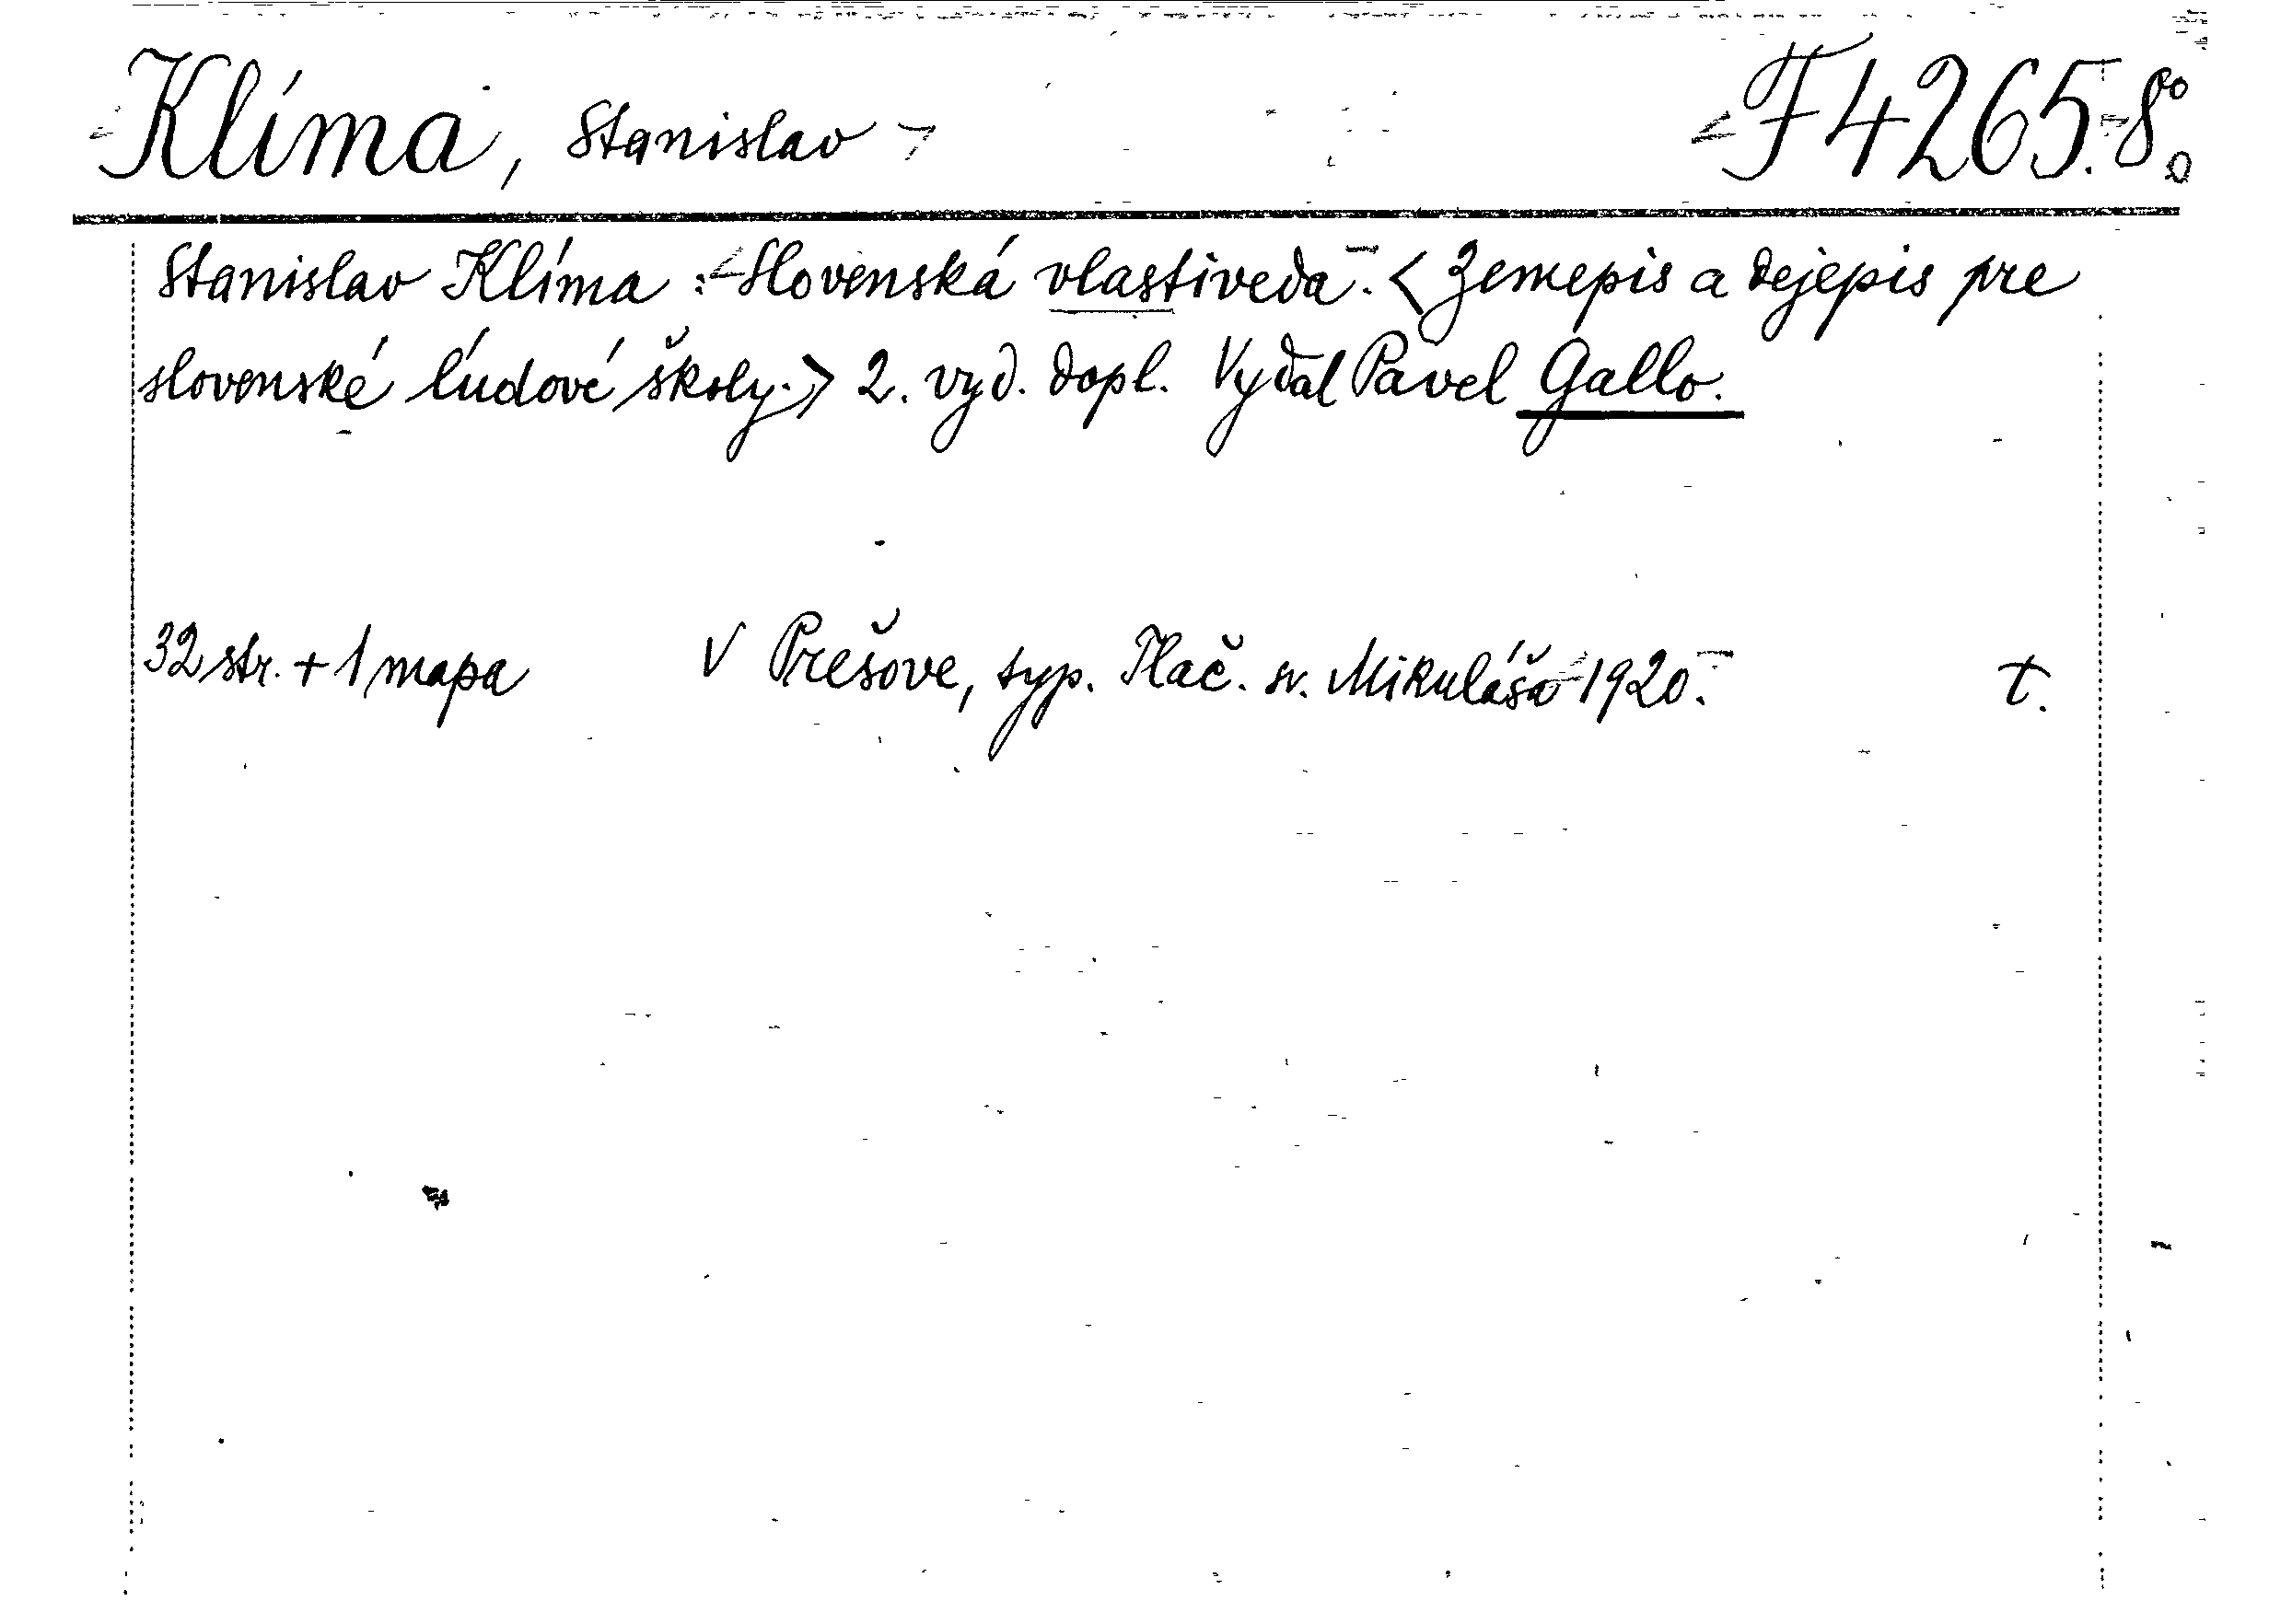 Klíma, Stanislav F 4265.8°
Stanislav Klíma: Slovenská vlastiveda. <Zemepis a dejepis pre
slovenské ľudové školy.> 2. vyd. dopl. Vydal Pavel Gallo.
32 str. + 1 mapa V Prešove, typ. Tlač. sv. Mikuláša 1920. t.